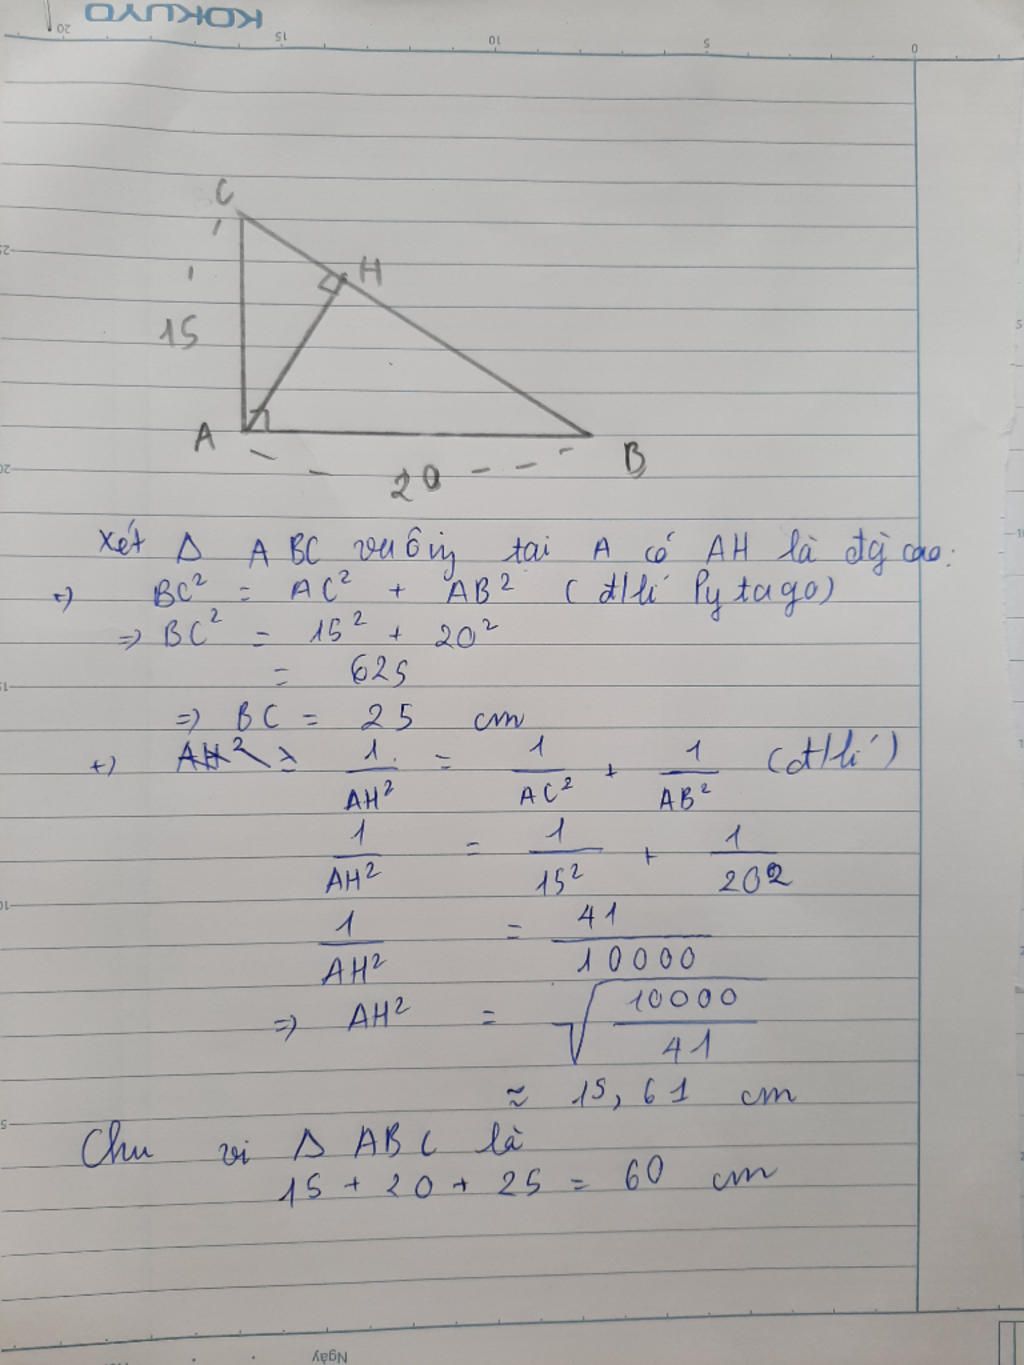 KOKUYO
20 15 10 5 0
C
H
15
A
B
20
Xét Δ ABC vuông tại A có AH là đg cao:
+) BC² = AC² + AB² (đ/lí Pytago)
=> BC² = 15² + 20²
= 625
=> BC = 25 cm
+) AH² 1/AH² = 1/AC² + 1/AB² (đ/lí)
1/AH² = 1/15² + 1/20²
1/AH² = 41/10000
=> AH² = √(10000/41)
≈ 15,61 cm
Chu vi Δ ABC là
15 + 20 + 25 = 60 cm
Ngày